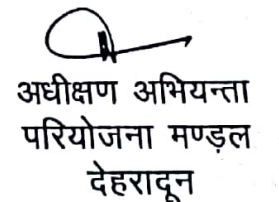 अधीक्षण अभियन्ता
परियोजना मण्ड़ल
देहरादून